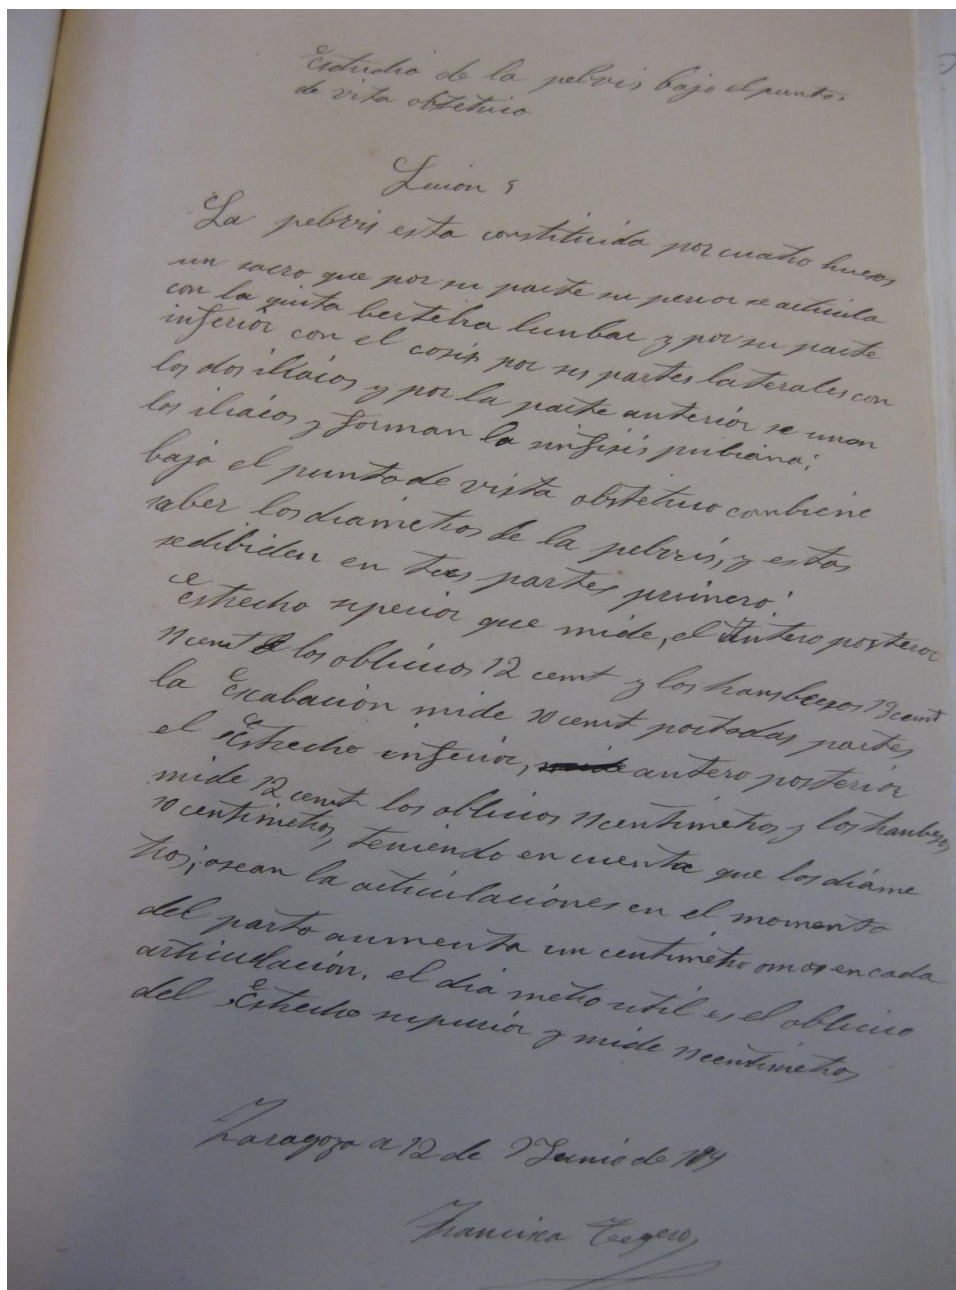 Estudio de la pelvis bajo el punto
de vita obstetrico
Lecion 5
La pelvris esta constituida por cuatro huesos
un sacro que por su parte su perior se articula
con la quita bertebra lunbar y por su parte
inferiór con el cosis por sus partes laterales con
los dos iliáios y por la parte anteriór se unen
los iliáios y forman la sinfisis pubiana;
bajó el punto de vista obstetrico conbiene
saber los diametros de la pelvris, y estos
sedibiden en tres partes primero;
Estrecho superior que mide, el Antero posterior
11 cemt los oblicuos 12 cemt y los transbersos 13 cemt
la Escabación mide 10 cemt portodas partes,
el Estrecho inferiór, antero posteriór
mide 12 cemt los oblicuos 11 centimetros y los tranbersos
10 centimetros, teniendo en cuenta que los diáme
tros; osean la articulaciónes en el momento
del parto aumenta un centimetro omas encada
articulación. el día metro util es el oblicuo
del Estrecho superiór y mide 11 centimetros
Zaragoza a 12 de Junio de
Francisca Tegero